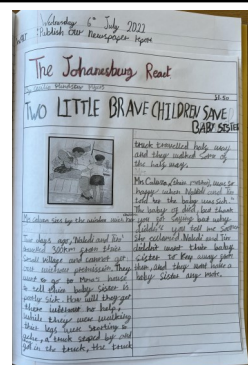 Wednesday 6th July 2022
Publish our Newspaper report
The Johanesburg React
$1.50
TWO LITTLE BRAVE CHILDREN SAVE
BABY SISTER
Two days ago, Naledi and Tiro
travelled 300km from their
Small village and cannot get
out without permission. They
want to go to Mma's house
to tell their baby sister is
poorly sick. How will they get
there without no help,
while they were walking
their legs were starting to
ache, a truck stoped by and
got in the truck, the truck
truck travelled half way
and they walked some of
the half way.
happy when Naledi and Tiro
told her the baby was sick."
The baby of died, but thank
you for saying but why
didn't you tell me sooner"
she exclaimed Naledi and Tiro
didn't want their baby
sister to go away from
them, and they wont have a
baby sister any more.